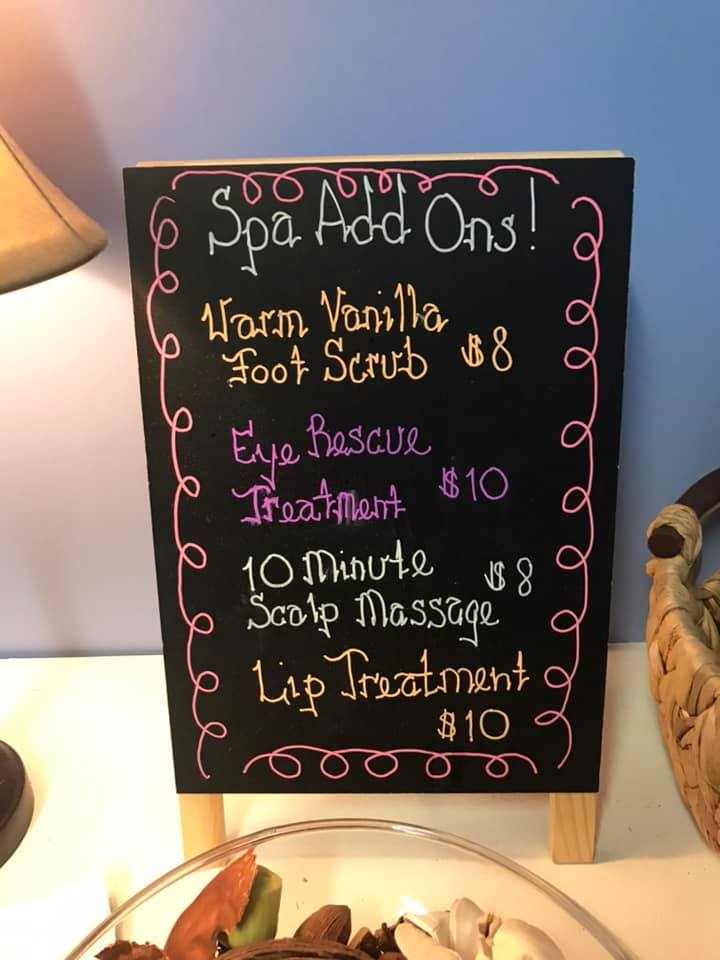 Spa Add Ons!
Warm Vanilla
Foot Scrub $8
Eye Rescue
Treatment $10
10 Minute $8
Scalp Massage
Lip Treatment
$10